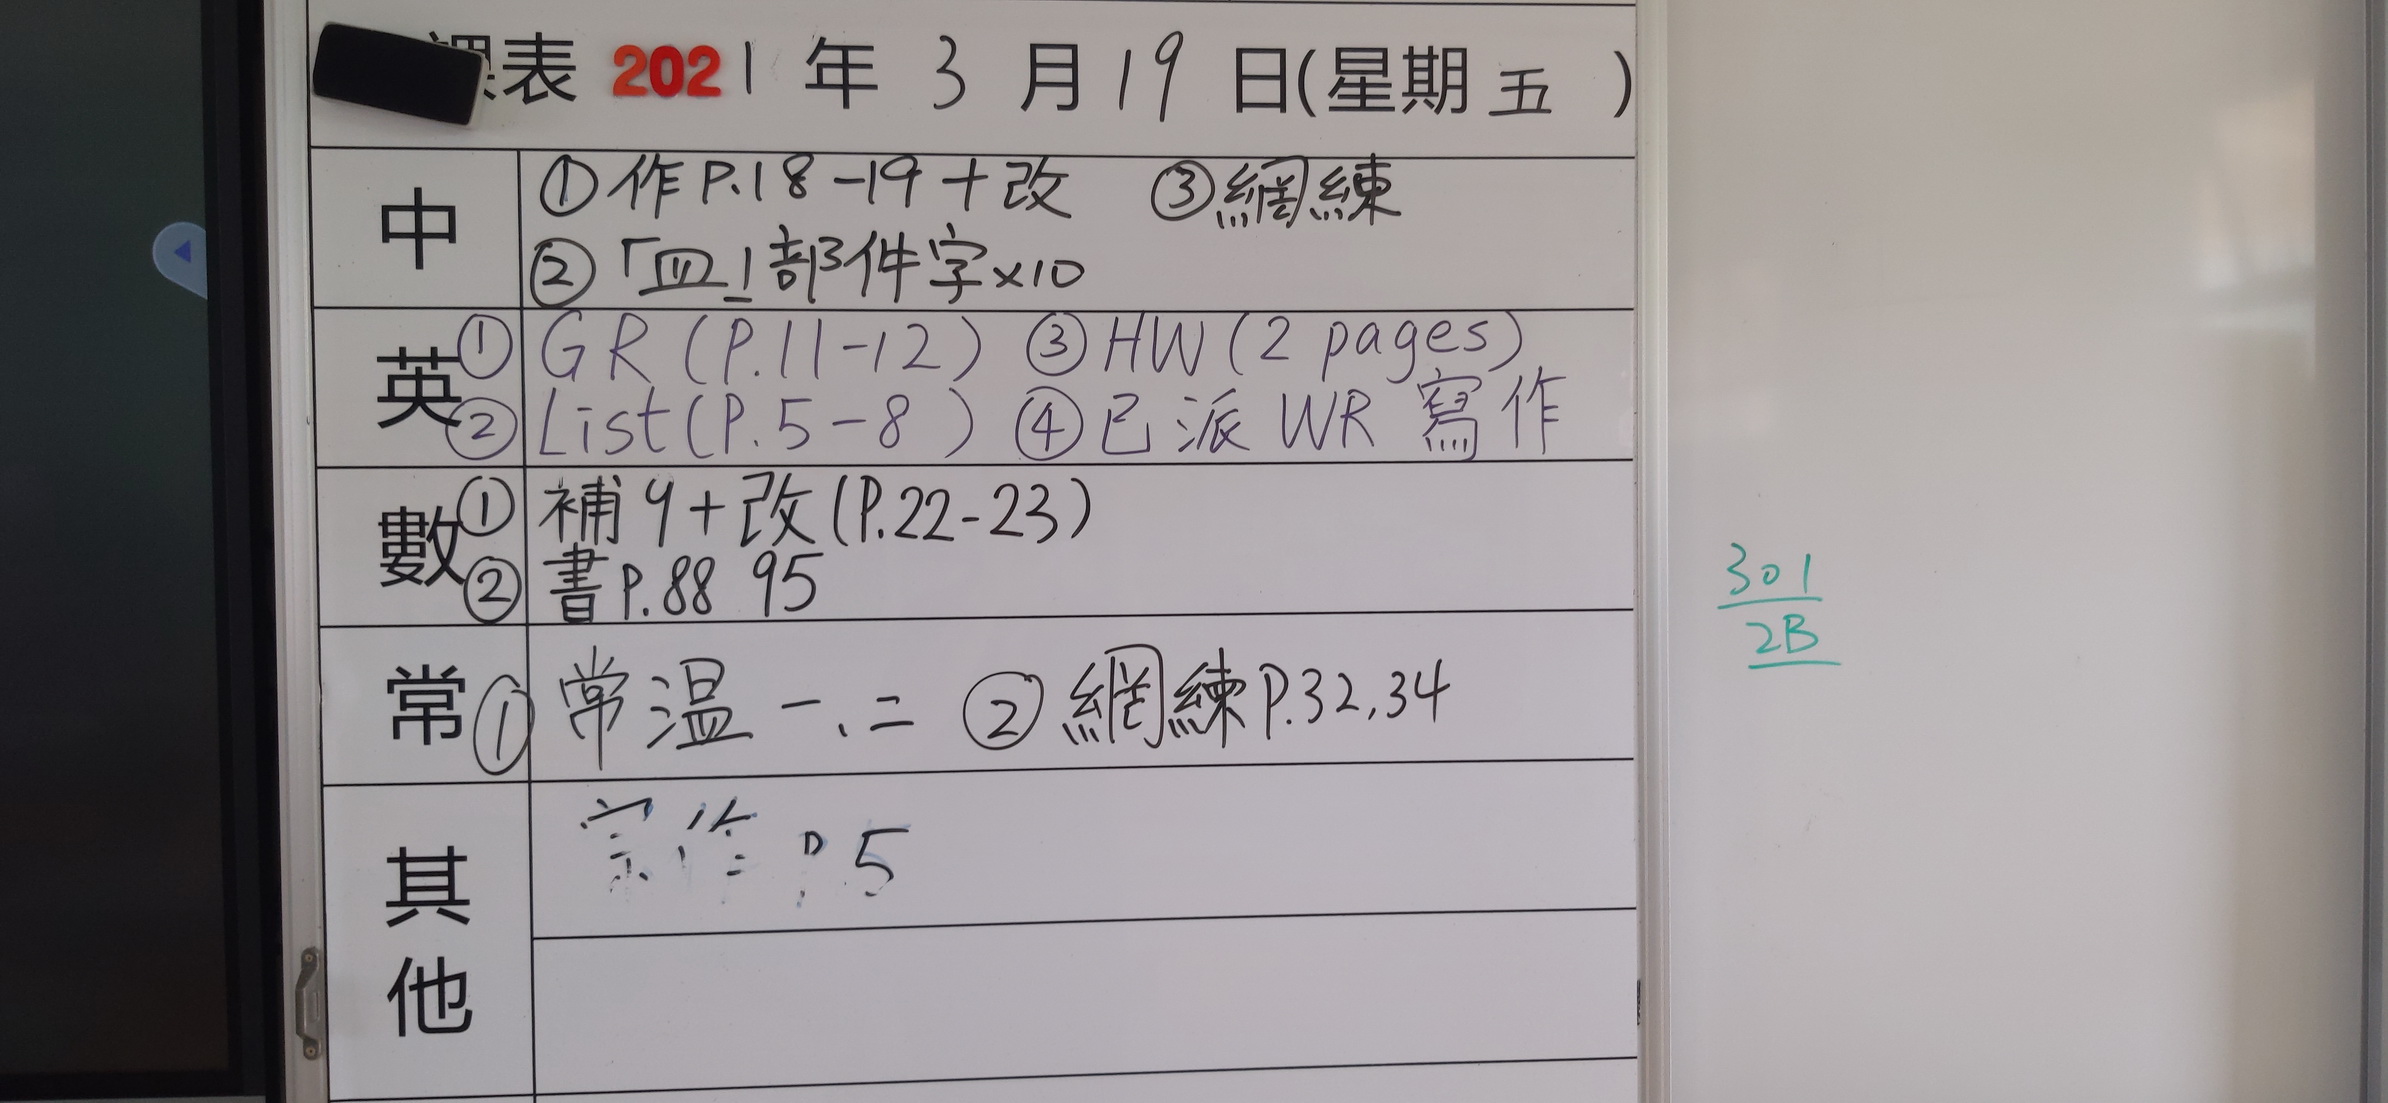 課表 2021 年 3 月 19 日(星期 五 )
中
①作P.18-19+改 ③網練
②「皿」部件字x10
英
①GR(P.11-12) ③HW(2 pages)
②List(P.5-8) ④已派WR 寫作
數
①補9+改(P.22-23)
②書P.88 95
常
①常溫一、二 ②網練P.32,34
其他
P.5
301
2B